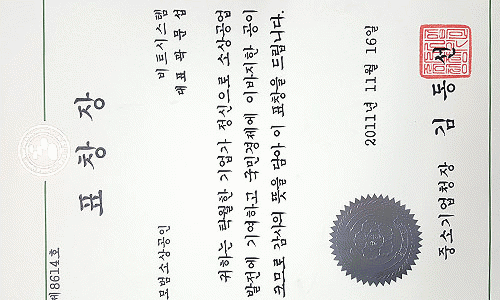 제8614호
표 창 장
모범소상공인
비트시스템
대표 곽 문 섭
귀하는 탁월한 기업가 정신으로 소상공업
발전에 기여하고 국민경제에 이바지한 공이
크므로 감사의 뜻을 담아 이 표창을 드립니다.
2011년 11월 16일
중소기업청장 김 동 선